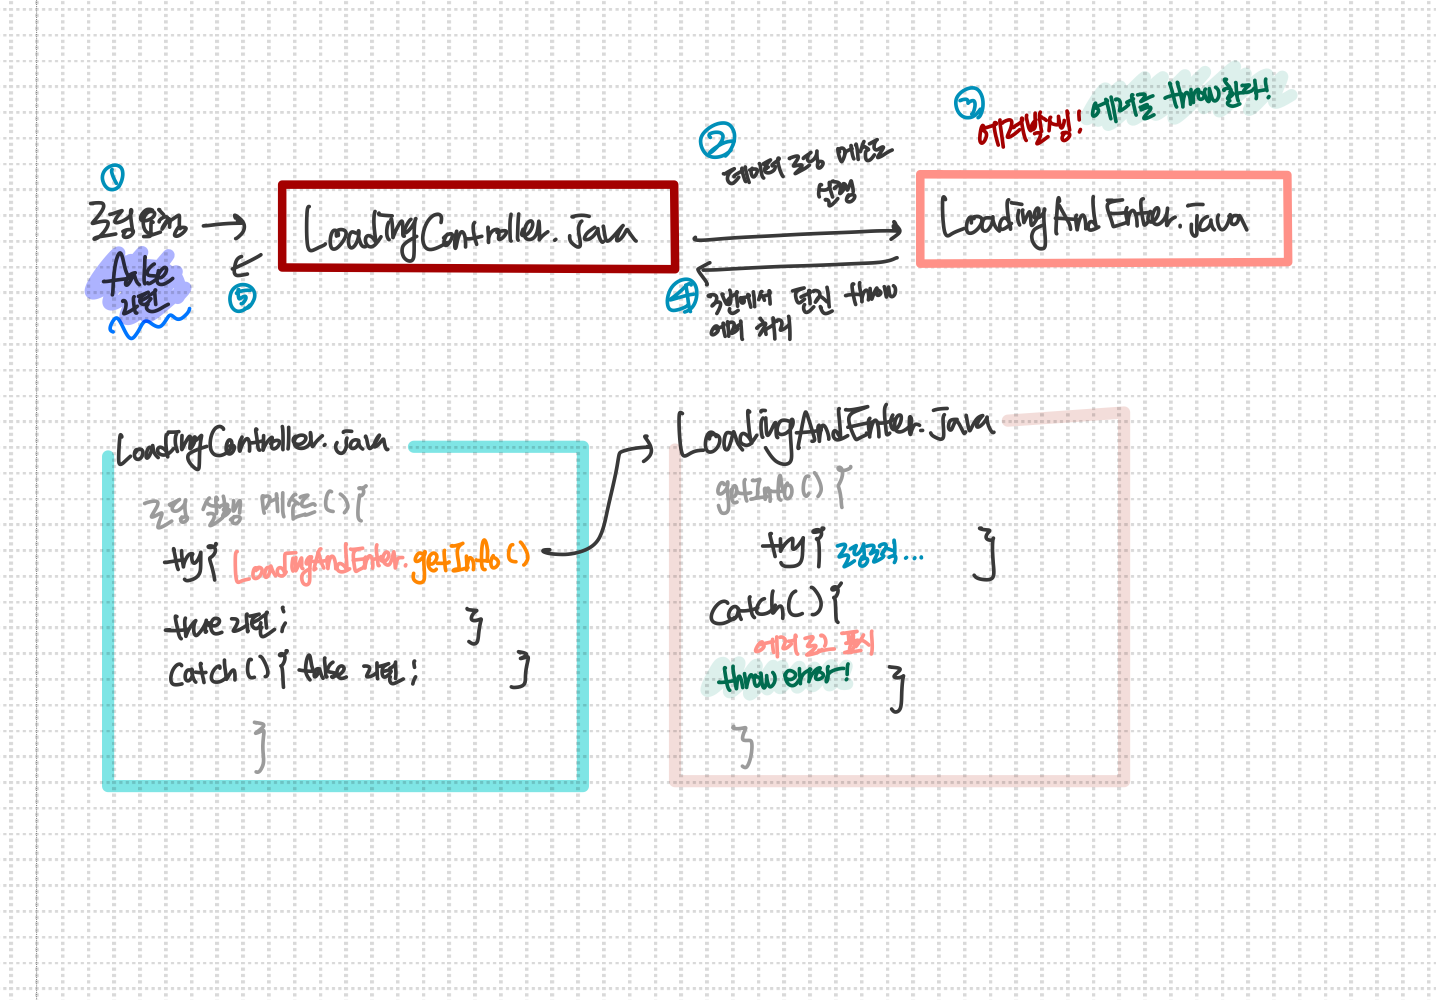 ①
로딩요청
false
리턴
⑤
LoadingController.java
②
데이터 로딩 메소드
실행
④
3번에서 던진 throw
에러 처리
③
에러발생! 에러를 throw한다!
LoadingAndEnter.java
LoadingController.java
로딩 실행 메소드(){
try{ LoadingAndEnter.getInfo()
true 리턴; }
catch(){ false 리턴; }
}
LoadingAndEnter.java
getInfo(){
try{ 로딩로직... }
catch(){
에러 로그 표시
throw error! }
}